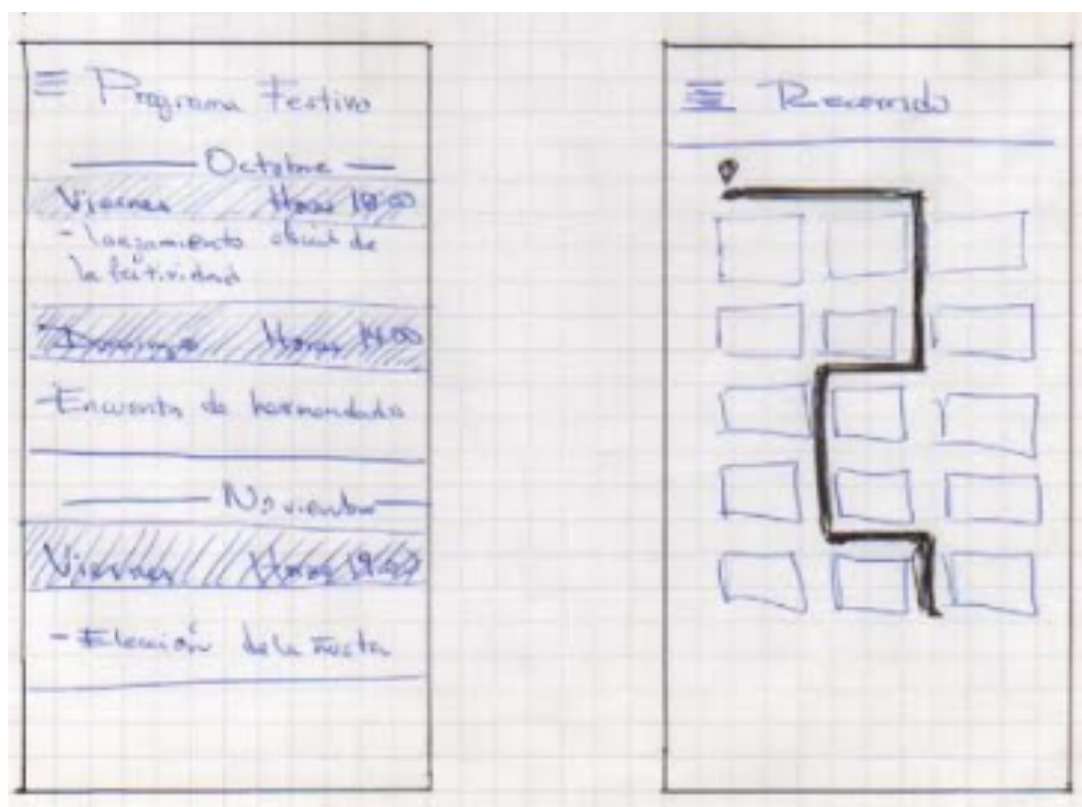 Programa Festivo
Octubre
Viernes Horas 18:00
- lanzamiento de
la festividad
Domingo Horas 14:00
- Encuentro de hermandado
Noviembre
Viernes Horas
- Elección de la Ñusta
Recorrido